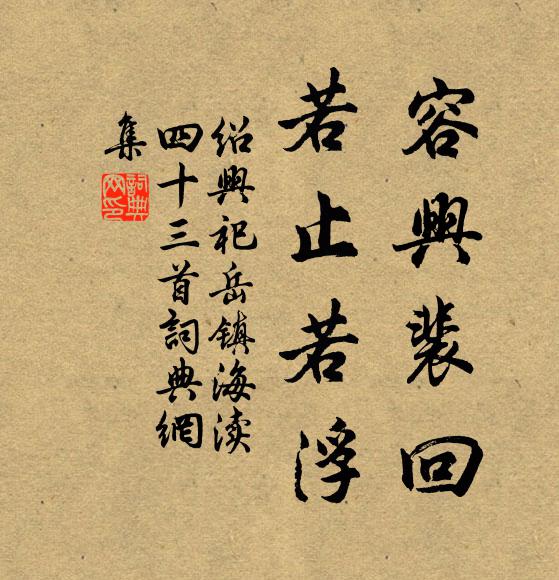 容興裴回
若止若浮
紹興祀岳鎮海渎
四十三首詞典網
集
詞典
网印